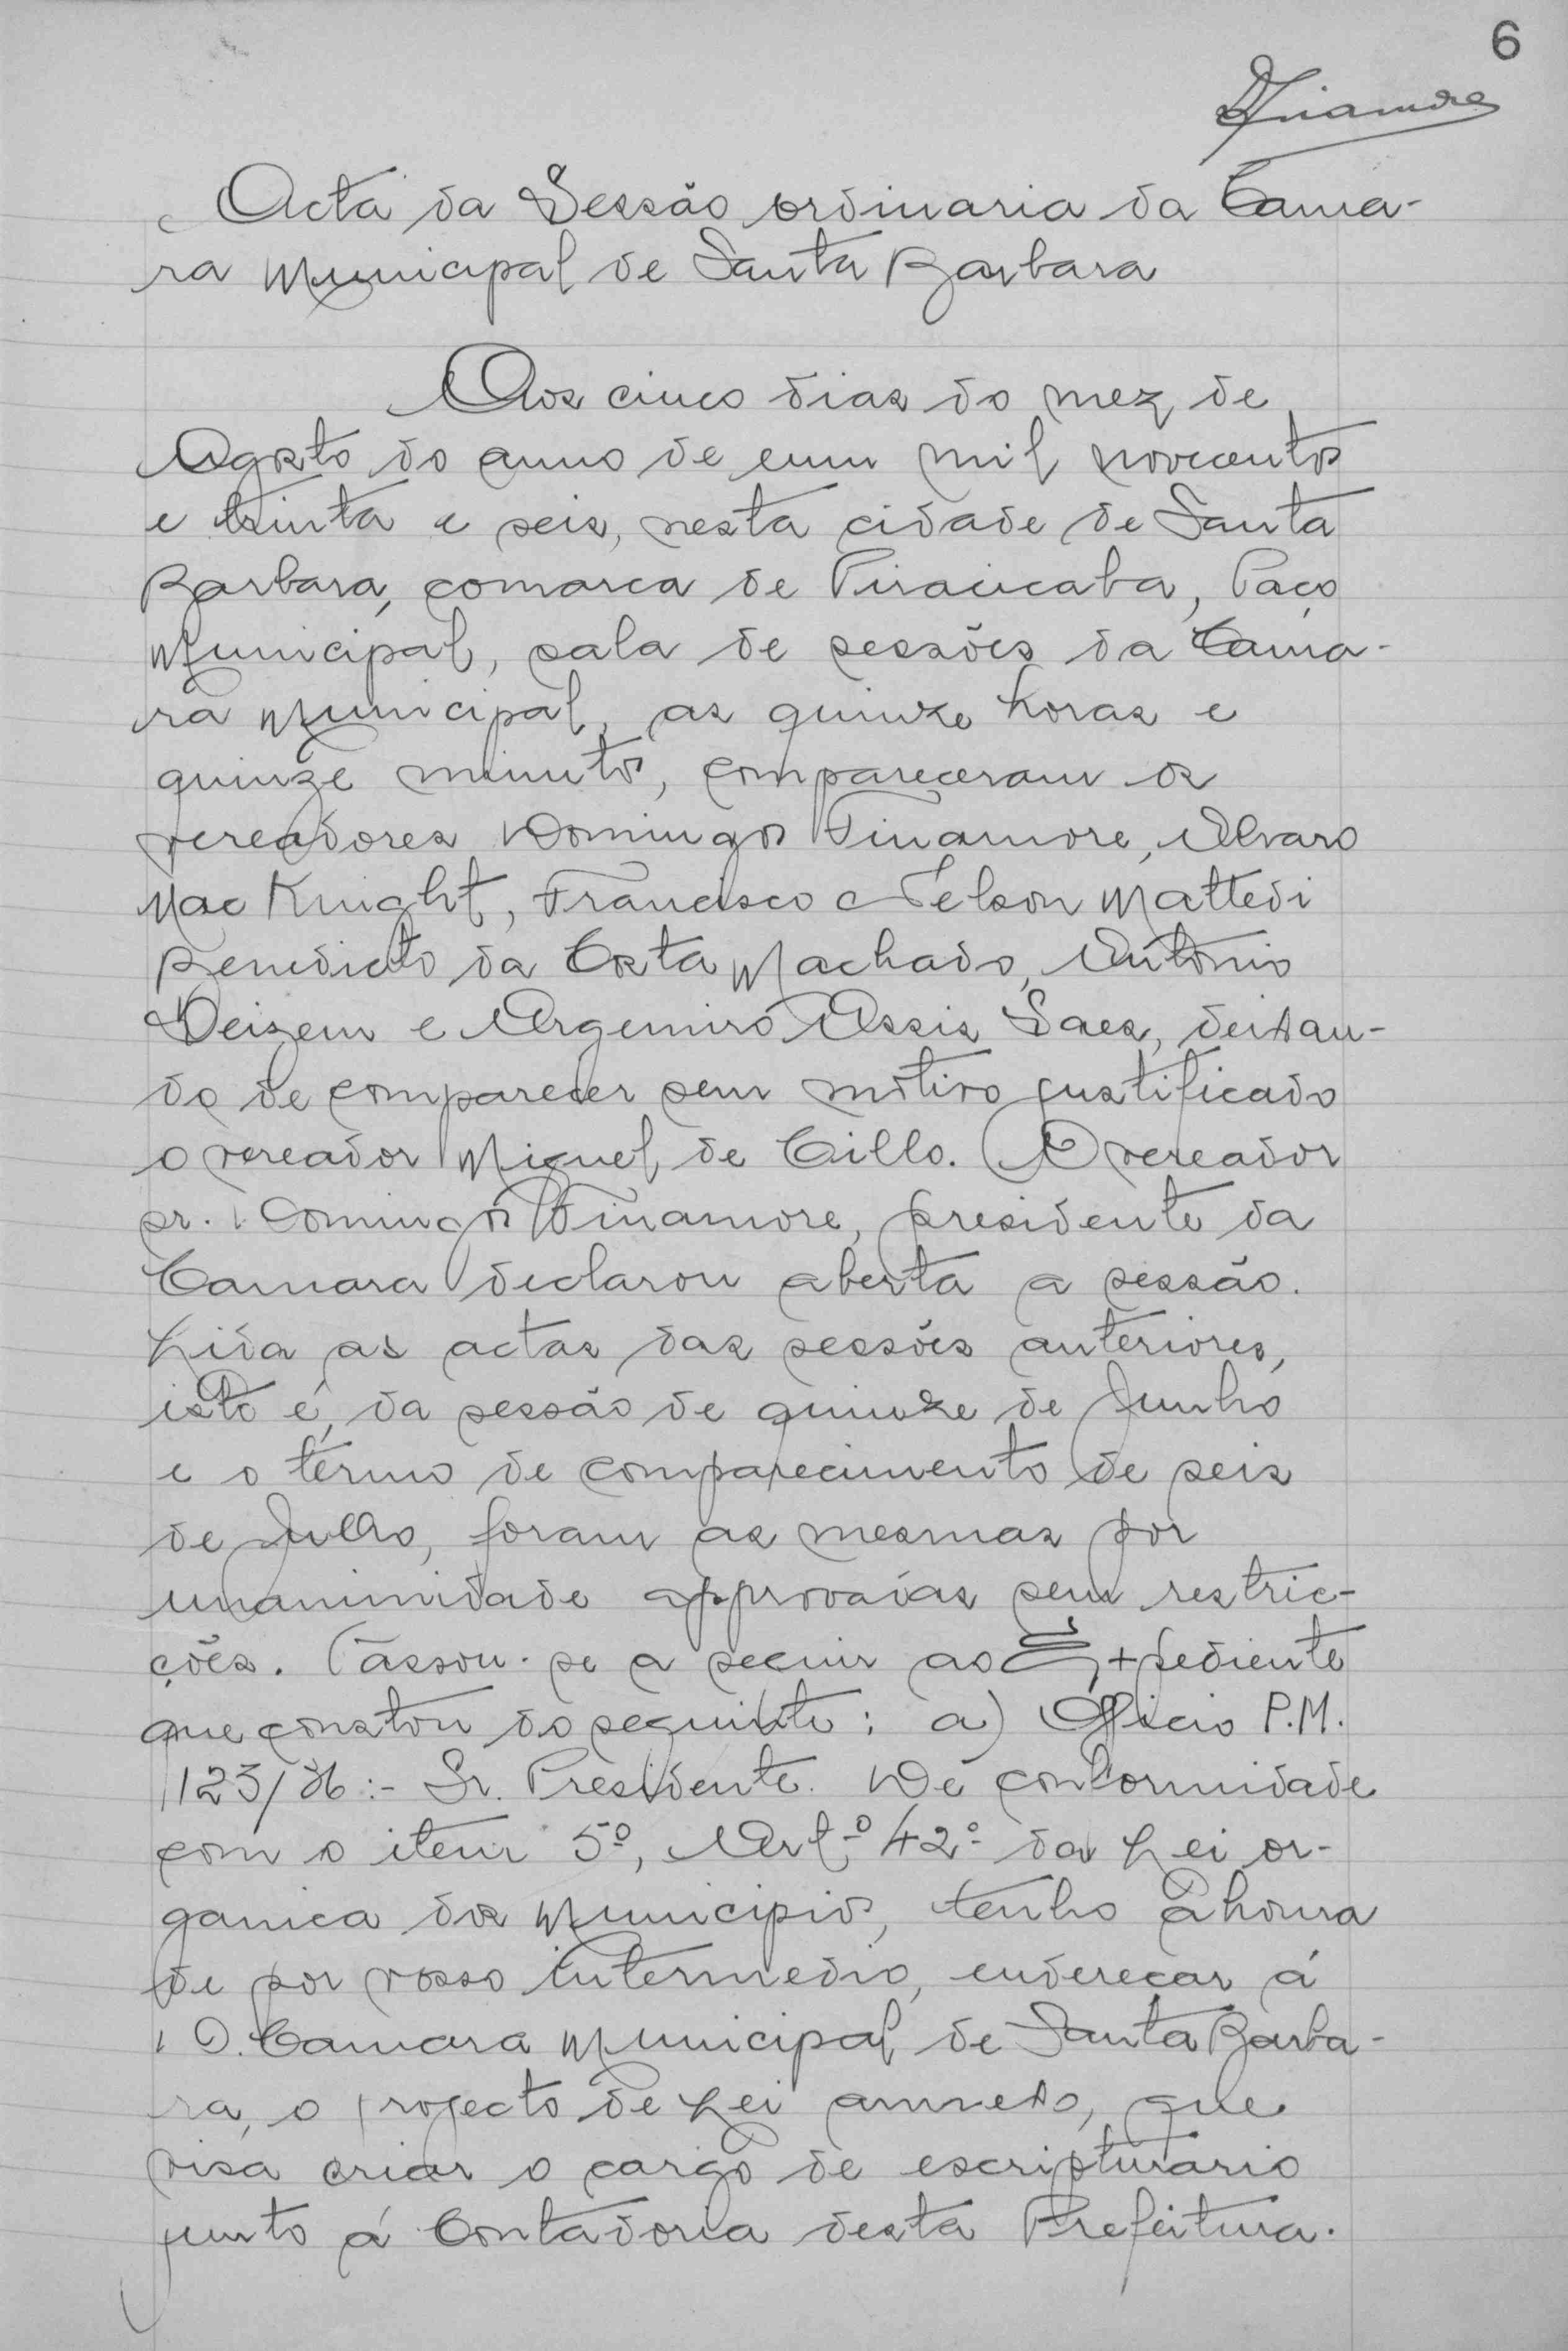 6
DFinamore
Acta da Sessão ordinaria da Cama-
ra Municipal de Santa Barbara
Aos cinco dias do mez de
Agosto do anno de eum mil novecentos
e trinta e seis, nesta cidade de Santa
Barbara, comarca de Piracicaba, Paço
Municipal, sala de sessões da Cama-
ra Municipal, as quinze horas e
quinze minutos, compareceram os
vereadores Domingos Finamore, Alvaro
Mac Knight, Francisco Nelson Mattedi
Benedicto da Costa Machado, Antonio
Deizem e Argemiro Assis Saes, deixan-
do de comparecer sem motivo justificado
o vereador Miguel de Cillo. O vereador
sr. Domingos Finamore, presidente da
Camara declarou aberta a sessão.
Lida as actas das sessões anteriores,
isto é, da sessão de quinze de Junho
e o termo de comparecimento de seis
de Julho, foram as mesmas por
unanimidade approvadas sem restric-
ções. Passou-se a seguir ao Expediente
que constou do seguinte: a) Officio P.M.
123/36:- Sr. Presidente. De conformidade
com o item 5º, Artº 42º da Lei or-
ganica dos Municipios, tenho a honra
de por vosso intermedio, endereçar á
D. Camara Municipal de Santa Barba-
ra, o projecto de Lei annexo, que
visa criar o cargo de escripturario
junto á Contadoria desta Prefeitura.